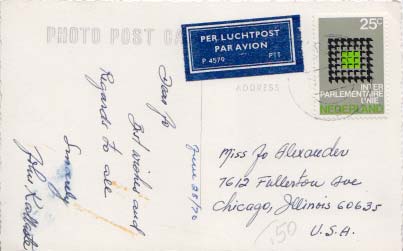 PHOTO POST CA
PER LUCHTPOST
PAR AVION
P 4579 PTT
25c
INTER
PARLEMENTAIRE
UNIE
NEDERLAND
ADDRESS
June 28/70
Dear Jo
Best wishes and
Regards to all
Sincerely
John
Miss Jo Alexander
7612 Fullerton Ave
Chicago, Illinois 60635
U.S.A.
50